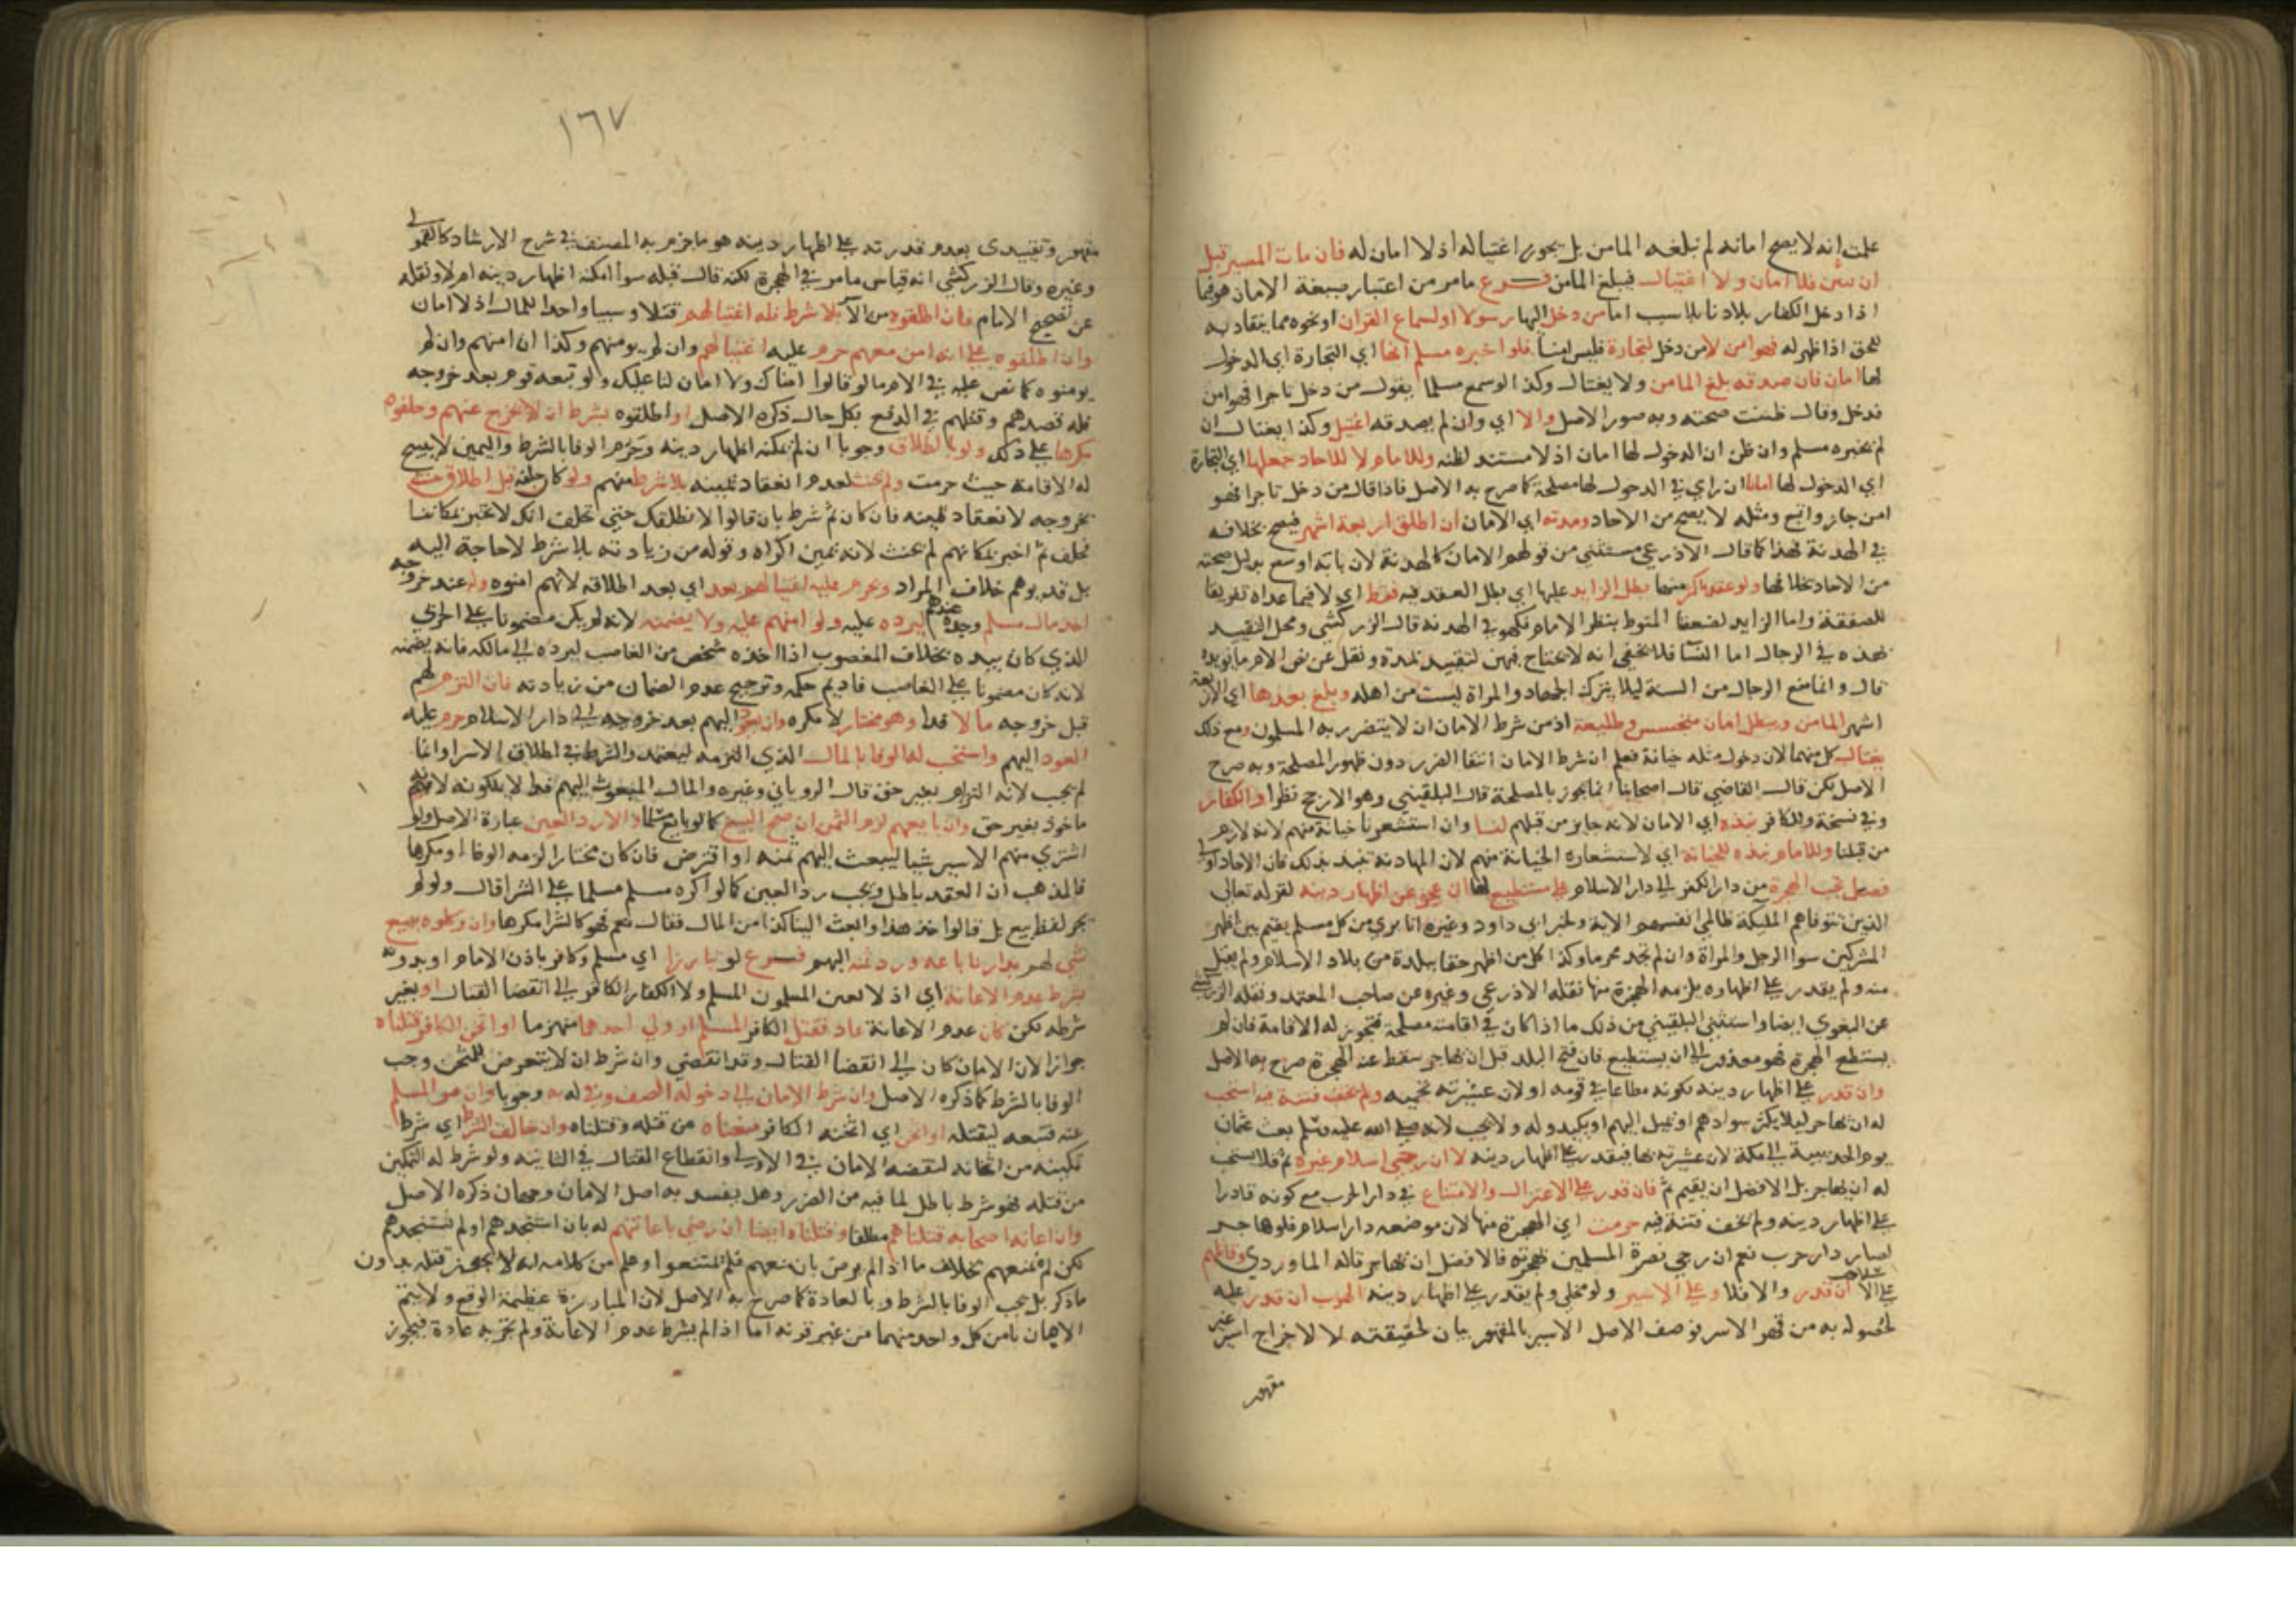 علمت انه لا يصح امانه لم نبلغه المامن بل يجوز اغتياله اذ لا امان له فان مات المسير قبل
ان بين فلا امان ولا اغتيال فيبلغ المامن فرع ما مر من اعتبار صيغة الامان هو فيما
اذا دخل الكفار بلادنا بلا سبب اما من دخل اليها رسولا او لسماع القران او نحوه مما ينقاد به
للحق اذا ظهر له فهو امن لا من دخل لتجارة فليس امنا فلو اخبره مسلم انها اي التجارة اي الدخول
لها امان فان صدقه بلغ المامن ولا يغتال وكذا لو سمع مسلما يقول من دخل تاجرا فهو امن
فدخل وقال ظننت صحته وبه صور الاصل والا اي وان لم يصدقه اغتيل وكذا يغتال ان
لم يخبره مسلم وان ظن ان الدخول لها امان اذ لا مستند لظنه وللامام لا للاحاد جعلها اي التجارة
اي الدخول لها امانا ان راي في الدخول لها مصلحة كما صرح به الاصل فاذا قال من دخل تاجرا فهو
امن جاز واتبع ومثله لا يصح من الاحاد ومدته اي الامان ان اطلق اربعة اشهر فيصح بخلافه
في الهدنة فهذا كما قال الاذرعي مستثنى من قولهم الامان كالهدنة لان بابه اوسع بدليل صحته
من الاحاد بخلافها ولو عقد باكثر منها بطل الزايد عليها اي بطل العقد فيه فقط اي لا فيما عداه تفريقا
للصفقة واما الزايد لضعفنا المنوط بنظر الامام فكهو في الهدنة قال الزركشي ومحل التقييد
بهذه في الرجال اما النسا فلا يخفى انه لا يحتاج فيهن لتقييد لمدة ونقل عن نص الام ما يويده
قال وانما منع الرجال من السنة ليلا يترك الجهاد والمراة ليست من اهله وبلغ بعدها اي الاربعة
اشهر المامن ويبطل امان متجسس وطليعة اذ من شرط الامان ان لا يتضرر به المسلمون ومع ذلك
يغتال كل منهما لان دخول مثله خيانة فعلم ان شرط الامان انتفا الضرر دون ظهور المصلحة وبه صرح
الاصل لكن قال القاضي قال اصحابنا انما يجوز بالمصلحة قال البلقيني وهو الارجح نظرا والكفار
وفي نسخة وللكافر نبذه اي الامان لانه جايز من قبلهم لنا وان استشعرنا خيانة منهم لانه لازم
من قبلنا وللامام نبذه للخيانة اي لاستشعاره الخيانة منهم لان المهادنة تنبذ بذلك فامان الاحاد اولى
فصل تجب الهجرة من دار الكفر الى دار الاسلام على مستطيع لها ان عجز عن اظهار دينه لقوله تعالى
الذين تتوفاهم المليكة ظالمي انفسهم الاية ولخبر ابي داود وغيره انا بري من كل مسلم يقيم بين اظهر
المشركين سوا الرجل والمراة وان لم تجد محرما وكذا كل من اظهر حقا ببلدة من بلاد الاسلام ولم يقبل
منه ولم يقدر على اظهاره يلزمه الهجرة منها نقله الاذرعي وغيره عن صاحب المعتمد ونقله الزركشي
عن البغوي ايضا واستثنى البلقيني من ذلك ما اذا كان في اقامته مصلحة فتجوز له الاقامة فان لم
يستطع الهجرة فهو معذور الى ان يستطيع فان فتح البلد قبل ان يهاجر سقط عنه الهجرة صرح به الاصل
وان قدر على اظهار دينه لكونه مطاعا في قومه او لان عشيرته تحميه ولم يخف فتنة فيه استحب
له ان يهاجر ليلا يكثر سوادهم او يميل اليهم او يكيدوا له ولا تجب لانه صلى الله عليه وسلم بعث عثمان
يوم الحديبية الى مكة لان عشيرته بها فيقدر على اظهار دينه لا ان رجي اسلام غيره ثم فلا يستحب
له ان يهاجر بل الافضل ان يقيم ثم فان قدر على الاعتزال والامتناع في دار الحرب مع كونه قادرا
على اظهار دينه ولم يخف فتنة فيه حرمت اي الهجرة منها لان موضعه دار اسلام فلو هاجر
لصار دار حرب نعم ان رجي نصرة المسلمين بهجرته فالافضل ان يهاجر قاله الماوردي وقاتلهم
على الاسلام ان قدر والا فلا وعلى الاسير ولو مخلى ولم يقدر على اظهار دينه الهرب ان قدر عليه
لخلوصه به من قهر الاسر فوصف الاصل الاسير بالمقهور بيان لحقيقته لا لاخراج اسير غير
مقهور
١٦٧
مقهور وتقييدي بعدم قدرته على اظهار دينه هو ما جزم به المصنف في شرح الارشاد كالقمولي
وغيره وقال الزركشي انه قياس ما مر في الهجرة لكنه قال قبله سوا امكنه اظهار دينه ام لا ونقله
عن تصحيح الامام فان اطلقوه من الاسر بلا شرط فله اغتيالهم قتلا وسبيا واخذا للمال اذ لا امان
وان اطلقوه على انه امن معهم حرم عليه اغتيالهم وان لم يومنهم وكذا ان امنهم وان لم
يومنوه كما نص عليه في الام ما لو قالوا امناك ولا امان لنا عليك ولو تبعه قوم بعد خروجه
فله قصدهم وقتلهم في الدفع بكل حال ذكره الاصل او اطلقوه بشرط ان لا يخرج عنهم وحلفوه
مكرها على ذلك ولو بالطلاق وجوبا ان لم يمكنه اظهار دينه وحرم الوفا بالشرط واليمين لا يبيح
له الاقامة حيث حرمت ولم يحنث لعدم انعقاد يمينه بلا شرط منهم ولو كان حلفه قبل اطلاق حنث
بخروجه لانعقاد يمينه فان كان ثم شرط بان قالوا لا نطلقك حتى تحلف انك لا تخبر بمكاننا
فحلف ثم اخبر بمكانهم لم يحنث لانه يمين اكراه وقوله من زيادته بلا شرط لا حاجة اليه
بل قد يوهم خلاف المراد ويحرم عليه اغتيالهم بعد اي بعد اطلاقه لانهم امنوه وله عند خروجه
اخذ مال مسلم وجده عندهم ليرده عليه ولو امنهم عليه ولا يضمنه لانه لم يكن مضمونا على الحربي
الذي كان بيده بخلاف المغصوب اذا اخذه شخص من الغاصب ليرده الى مالكه فانه يضمنه
لانه كان مضمونا على الغاصب فاديم حكمه وترجيح عدم الضمان من زيادته فان التزم لهم
قبل خروجه مالا فدا وهو مختار لا مكره وان يعود اليهم بعد خروجه الى دار الاسلام حرم عليه
العود اليهم واستحب له الوفا بالمال الذي التزمه ليعتمد والشرط في اطلاق الاسرا وانما
لم يجب لانه التزام بغير حق قال الروياني وغيره والمال المبعوث اليهم فدا لا يملكونه لانه
ماخوذ بغير حق وان بايعهم لزم الثمن ان صح البيع كما لو بايع مسلما والا رد العين عبارة الاصل ولو
اشترى منهم الاسير شيا ليبعث اليهم ثمنه او اقترض فان كان مختارا لزمه الوفا او مكرها
فالمذهب ان العقد باطل ويجب رد العين كما لو اكره مسلم مسلما على الشرا قال ولو لم
يجر لفظ بيع بل قالوا خذ هذا وابعث الينا كذا من المال فقال نعم فهو كالشرا مكرها وان وكلوه ببيع
شي لهم بدارنا باعه ورد ثمنه اليهم فرع لو تبارزا اي مسلم وكافر باذن الامام او بدونه
بشرط عدم الاعانة اي اذ لا يعين المسلمون المسلم ولا الكفار الكافر الى انقضا القتال او بغير
شرطه لكن كان عدم الاعانة عادة فقتل الكافر المسلم او ولى احدهما منهزما او اثخن الكافر قتلناه
جوازا لان الامان كان الى انقضا القتال وقد انقضى وان شرط ان لا نتعرض للمثخن وجب
الوفا بالشرط كما ذكره الاصل وان شرط الامان الى دخوله الصف وفي له به وجوبا وان فر المسلم
عنه فتبعه ليقتله او اثخن اي اثخنه الكافر منعناه من قتله وقتلناه وان خالف الشرط اي شرط
تمكينه من اثخانه لنقضه الامان في الاولى وانقطاع القتال في الثانية ولو شرط له التمكين
من قتله فهو شرط باطل لما فيه من الضرر وهل يفسد به اصل الامان وجهان ذكره الاصل
وان اعانه اصحابه قتلناهم مطلقا وقتلناه ايضا ان رضي باعانتهم له بان استنجدهم او لم يستنجدهم
لكن لم يمنعهم بخلاف ما اذا لم يرض بان منعهم فلم يمتنعوا وعلم من كلامه انه لا يجوز قتله بدون
ما ذكر بل يجب الوفا بالشرط وبالعادة كما صرح به الاصل لان المبارزة عظيمة الوقع ولا يتم
الا بان يامن كل واحد منهما من غير قرنه اما اذا لم يشرط عدم الاعانة ولم تجر به عادة فيجوز